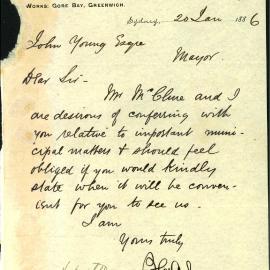 WORKS: GORE BAY, GREENWICH.
Sydney, 20 Jan 1886
John Young Esqre
Mayor.
Dear Sir -
Mr McClure and I
are desirous of conferring with
you relative to important muni-
cipal matters & should feel
obliged if you would kindly
state when it will be conven-
ient for you to see us.
I am
Yours truly